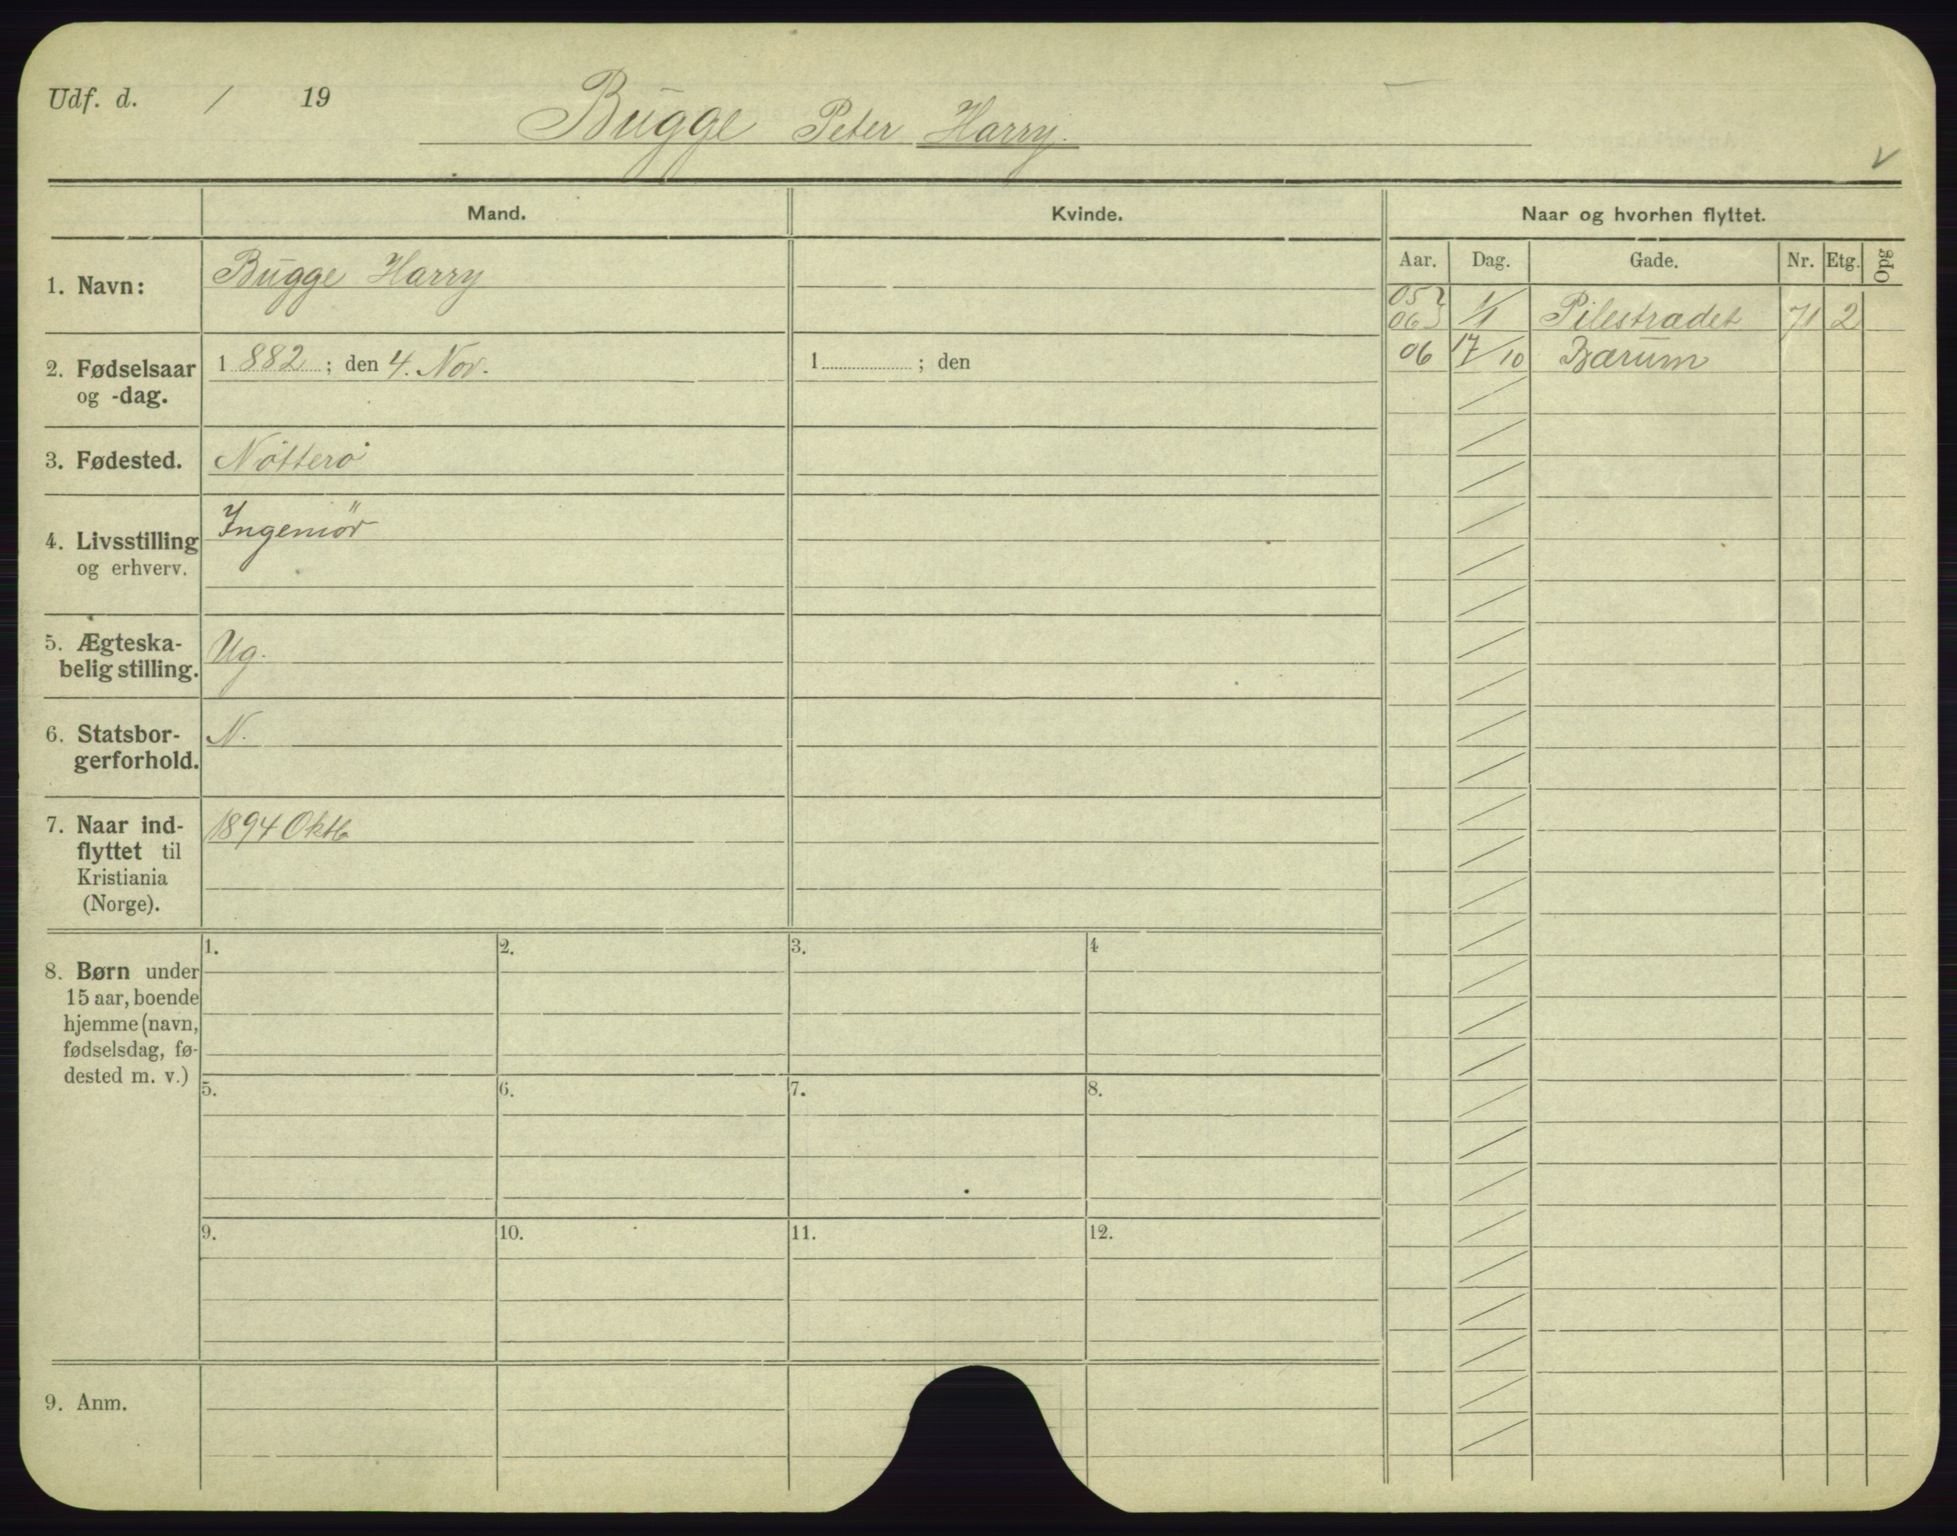 Udf. d. / 19
Bugge Peter Harry.
Mand.
Kvinde.
Naar og hvorhen flyttet.
Aar. Dag. Gade. Nr. Etg. Opg
1. Navn:
Bugge Harry
05 }
06 } 1/1 Pilestrædet 71 2
06 17/10 Bærum
2. Fødselsaar
og -dag.
1 882 ; den 4. Nov.
1 ; den
3. Fødested.
Nötterö
4. Livsstilling
og erhverv.
Ingeniör
5. Ægteska-
belig stilling.
Ug.
6. Statsbor-
gerforhold.
N.
7. Naar ind-
flyttet til
Kristiania
(Norge).
1894 Oktb
8. Børn under
15 aar, boende
hjemme (navn,
fødselsdag, fø-
dested m. v.)
1. 2. 3. 4
5. 6. 7. 8.
9. 10. 11. 12.
9. Anm.